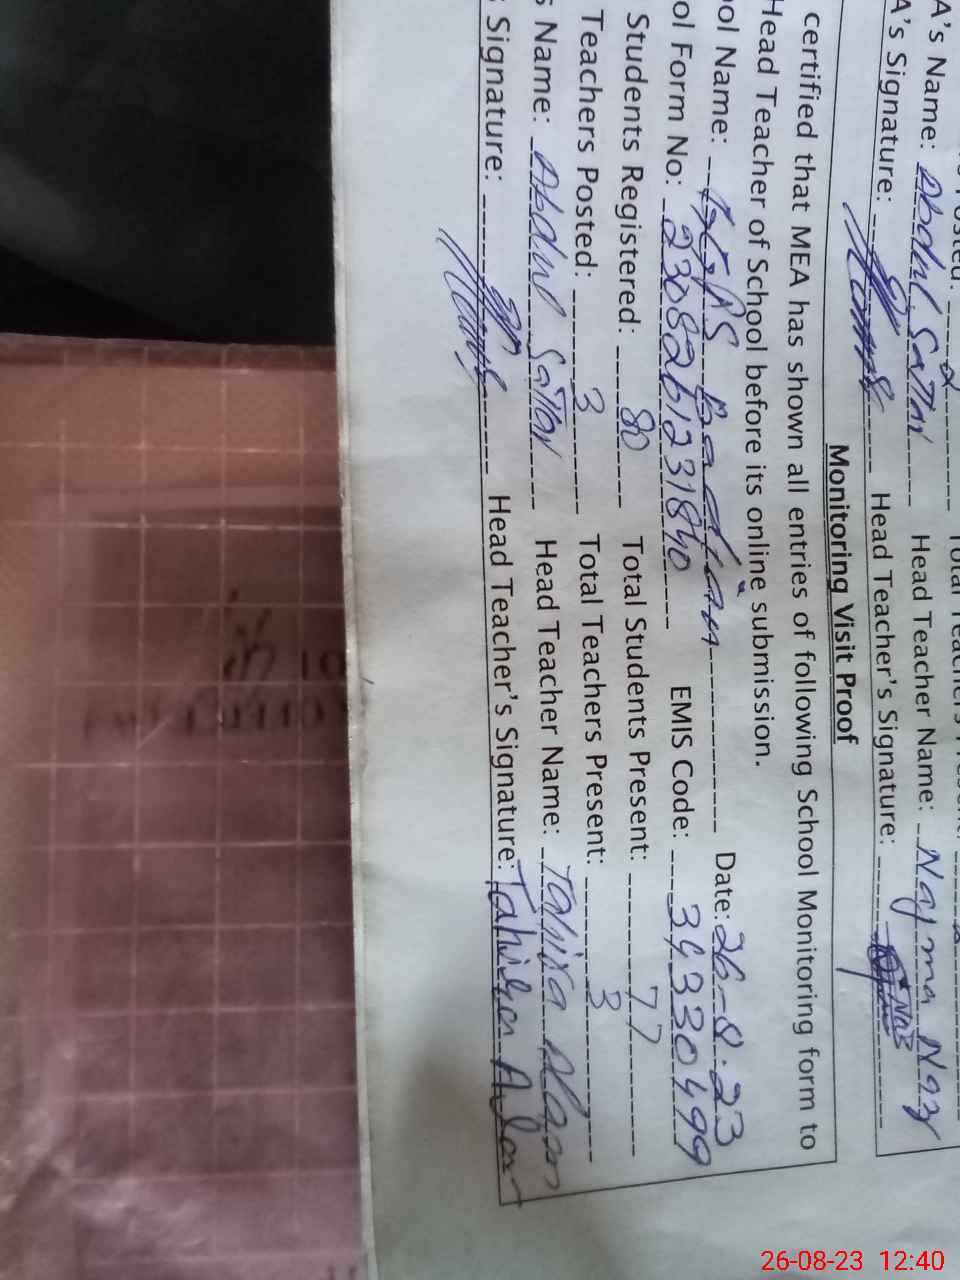 Posted: 2
A's Name: Abdul Sattar Head Teacher Name: Najma Naz
A's Signature: Head Teacher's Signature:
Monitoring Visit Proof
certified that MEA has shown all entries of following School Monitoring form to
Head Teacher of School before its online submission.
ool Name: Date: 26-8-23
ol Form No: 2308261231840 EMIS Code: 34330499
Students Registered: 80 Total Students Present: 77
Teachers Posted: 3 Total Teachers Present: 3
s Name: Abdul Sattar Head Teacher Name: Tahira Alam
Signature: Head Teacher's Signature: Tahira Alam
26-08-23 12:40